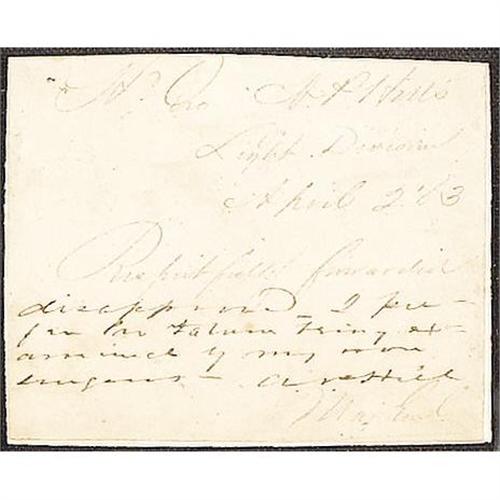 Hd Qrs A. P. Hill's
Light Division
April 2 '63
Respectfully forwarded
disapproved I pre-
fer Mr being ex-
amined by my own
surgeons - A P Hill
Maj Genl